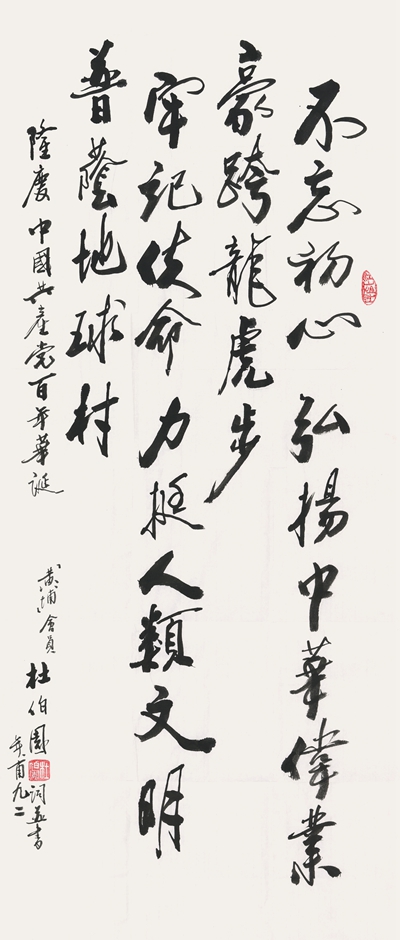 不忘初心 弘揚中華偉業
豪跨龍虎步
牢记使命 力挺人類文明
普蔭地球村
隆慶中國共產党百年華誕
黄埔會員 杜伯園 詞并書
年甫九二